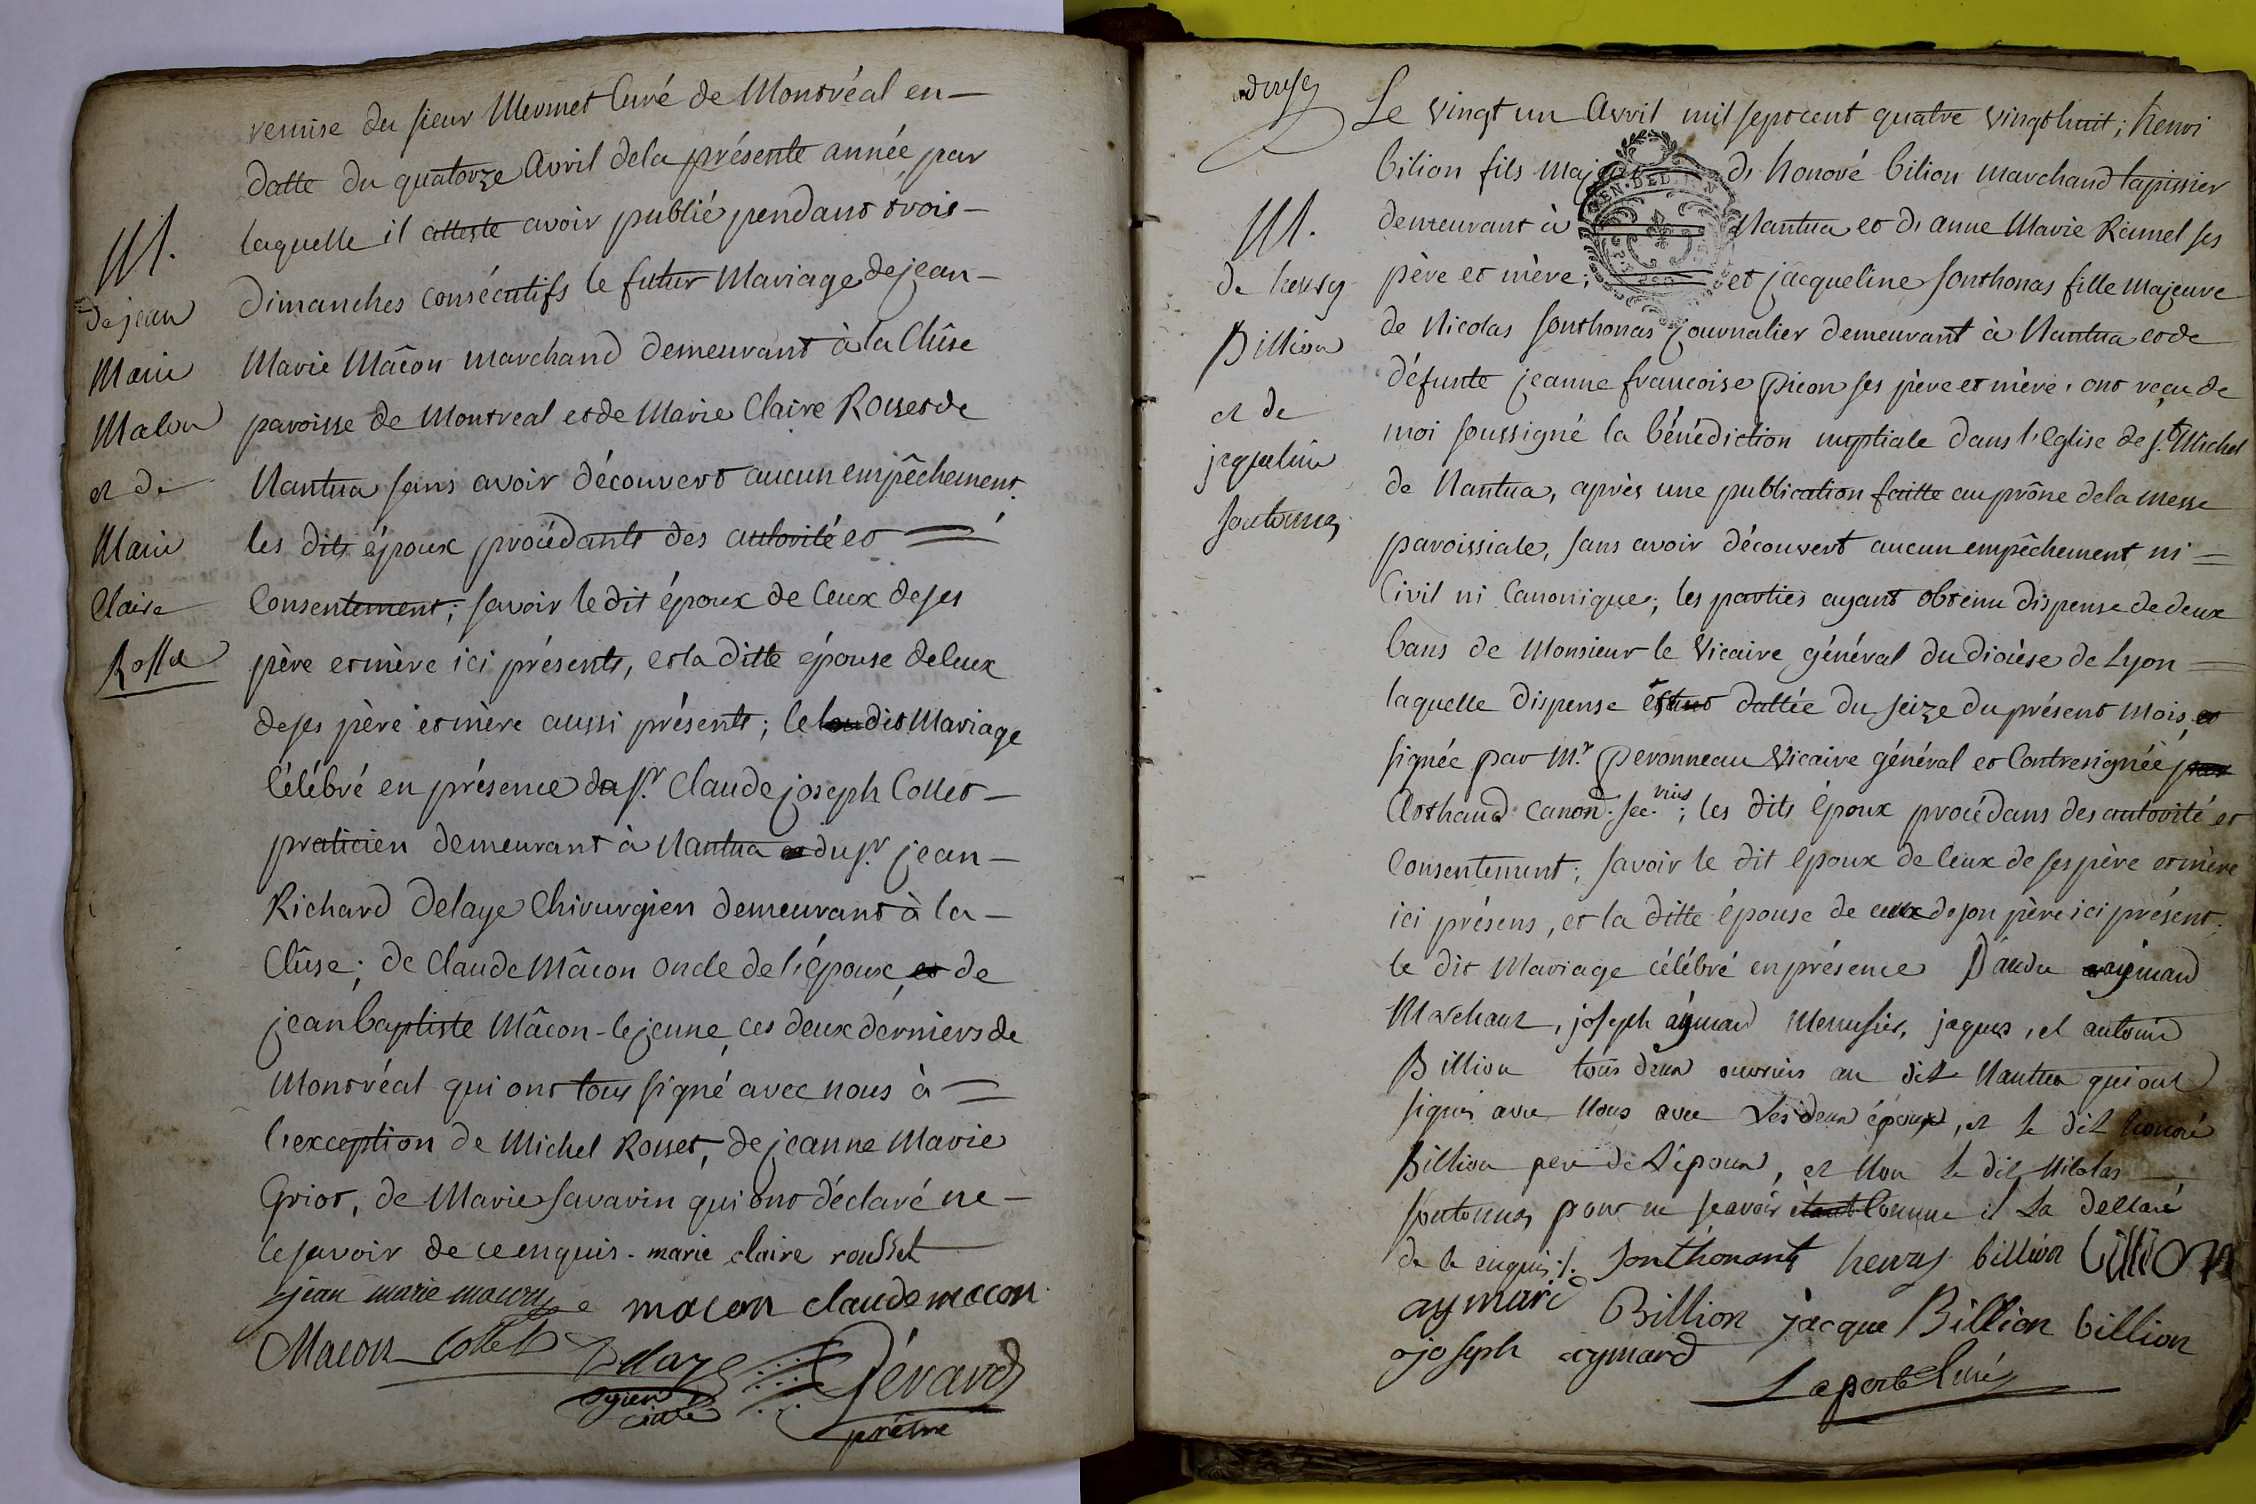 remise du sieur Mermet Curé de Montréal en—
datte du quatorze avril dela présente année, par
laquelle il atteste avoir publié pendant trois—
dimanches consécutifs le futur Mariage de jean—
Marie Mâcon marchand demeurant à la Clûse
paroisse de Montreal et de Marie Claire Rosset de
Nantua sans avoir découvert aucun empêchement.
les dits époux procédants des autorité et =
Consentement; savoir le dit époux de Ceux de ses
père et mère ici présents, et la ditte épouse de Ceux
de ses père et mère aussi présents; le dit Mariage
Célébré en présence du sr. Claude joseph Collet—
praticien demeurant à Nantua du sr. jean—
Richard Delaye Chirurgien demeurant à la—
Clûse; de Claude Mâcon oncle de l'époux, et de
jean baptiste Mâcon-lejeune, ces deux derniers de
Montréal qui ont tous signé avec nous à =
l'exception de Michel Rosset, de jeanne Marie
Griot, de Marie Savarin qui ont déclaré ne—
le savoir de ce enquis. marie claire rousset
jean marie macon macon claude macon
Macon Collet Delaye Gérard
prêtre
M.
de jean
Marie
Macon
et de
Marie
Claire
Rosset
Le vingt un Avril mil sept cent quatre vingt huit; henri
bilion fils Majeur de honoré bilion marchand tapissier
demeurant à Nantua et de anne Marie Ravinel ses
père et mère; et jacqueline sonthonas fille majeure
de Nicolas sonthonas journalier demeurant à Nantua et de
défunte jeanne francoise Picon ses père et mère, ont reçu de
moi soussigné la bénédiction nuptiale dans l'eglise de st. Michel
de Nantua, après une publication faitte au prône dela messe
paroissiale, sans avoir découvert aucun empêchement, ni =
Civil ni Canonique; les parties ayant obtenu dispense de deux
bans de Monsieur le Vicaire général du diocèse de Lyon =
laquelle dispense est dattée du seize du présent mois, et
signée par Mr. Peronneau Vicaire général et Contresignée par
Clothaud canon. sec.rius; les dits époux procédans des autorité et
Consentement; savoir le dit époux de Ceux de ses père et mère
ici présens, et la ditte épouse de ceux de son père ici présent.
le dit Mariage célébré en présence aymard
Marchant, joseph aymard Menusier, jaques, et antoine
Billion tous deux ouvriers au dit Nantua qui ont
signés avec Nous avec Les deux époux, et le dit honoré
Billion pere de L'époux, et Non le dit Nicolas
sontonas pour ne scavoir Comme il La declaré
de ce enquis ./. Sonthonant henry billion billion
aymard Billion jacque Billion billion
joseph aymard
Laporte Curé
M.
de henry
Billion
et de
jacqueline
sontonas